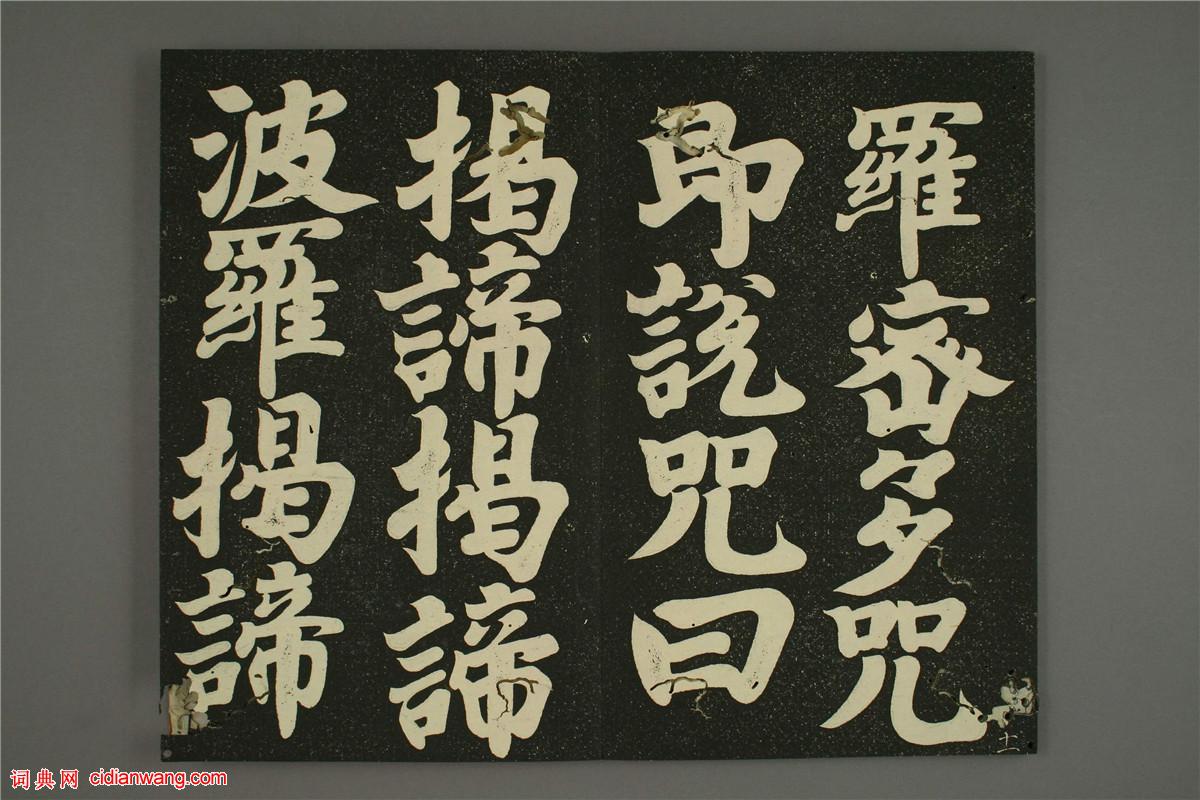 羅密多咒
即說咒曰
揭諦揭諦
波羅揭諦
十一
词典网 cidianwang.com